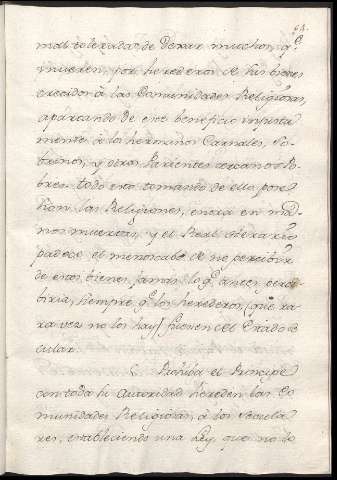 64.
mal tolerada, de Dexar muchos, q.e
mueren, por herederos de sus bienes
crecidos à las Comunidades Religiosas,
apartando de este beneficio injusta
mente à los hermanos Carnales, So-
brinos, y otros Parientes cercanos Po-
bres: todo esto tomando de ello pose
sion las Religiones, entra en ma-
nos muertas, y el Real Herario
padece el menoscabo de no percibir
de estos bienes jamás lo q.e antes perci
biria, siempre q.e los herederos, (que ra
ra vez no los hay) fuesen del Estado Se
cular.
Prohiba el Principe
con toda su autoridad hereden las Co
munidades Religiosas, à los Secula
res, estableciendo una Ley, que no lo